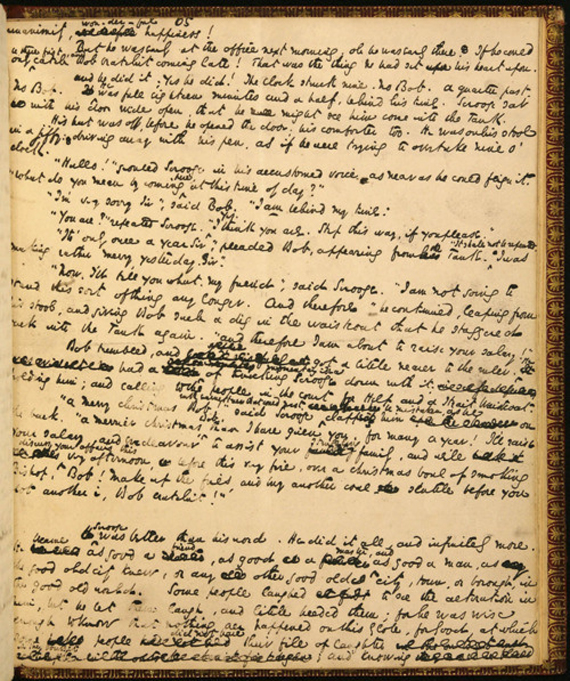 won-der-ful happiness!
But he was early at the office next morning. oh he was early there. If he could
only catch Bob Cratchit coming late! That was the thing he had set his heart upon.
and he did it; Yes he did! The clock struck nine. no Bob. a quarter past.
no Bob. was full eighteen minutes and a half, behind his time. Scrooge sat
with his door wide open, that he might see him come into the Tank.
His hat was off before he opened the door; his comforter too. He was on his stool
in a jiffy; driving away with his pen, as if he were trying to overtake nine o'
clock.
"Hullo!" growled Scrooge in his accustomed voice as near as he could feign it.
"What do you mean by coming here at this time of day?"
"I'm very sorry Sir", said Bob. "I am behind my time."
"You are?" repeated Scrooge. "Yes. I think you are. Step this way, if you please."
"It's only once a year Sir", pleaded Bob, appearing from the Tank. "It shall not be repeated. I was
making rather merry yesterday, Sir."
"Now, I'll tell you what, my friend", said Scrooge. "I am not going to
stand this sort of thing any longer. And therefore" he continued, leaping from
his stool, and giving Bob such a dig in the waistcoat that he staggered
back into the Tank again: "and therefore I am about to raise your salary!"
Bob trembled, and got a little nearer to the ruler.
had a momentary idea of knocking Scrooge down with it;
holding him; and calling to the people in the court for help and a strait waistcoat.
"a merry christmas Bob", said Scrooge with an earnestness that could not be mistaken, as he clapped him on
the back. "a merrier christmas Bob than I have given you, for many a year! I'll raise
your salary, and endeavour to assist your struggling family, and we'll
discuss your affairs this very afternoon, before this very fire, over a christmas bowl of smoking
Bishop, Bob! Make up the fires and buy another coal scuttle before you
dot another i, Bob Cratchit!"
Scrooge was better than his word. He did it all, and infinitely more.
became as good a friend, as good a master, and as good a man, as
the good old city knew, or any other good old city, town, or borough, in
the good old world. Some people laughed to see the alteration in
him, but he let them laugh, and little heeded them; for he was wise
enough to know that nothing ever happened on this globe, for good, at which
some people did not have their fill of laughter
and knowing